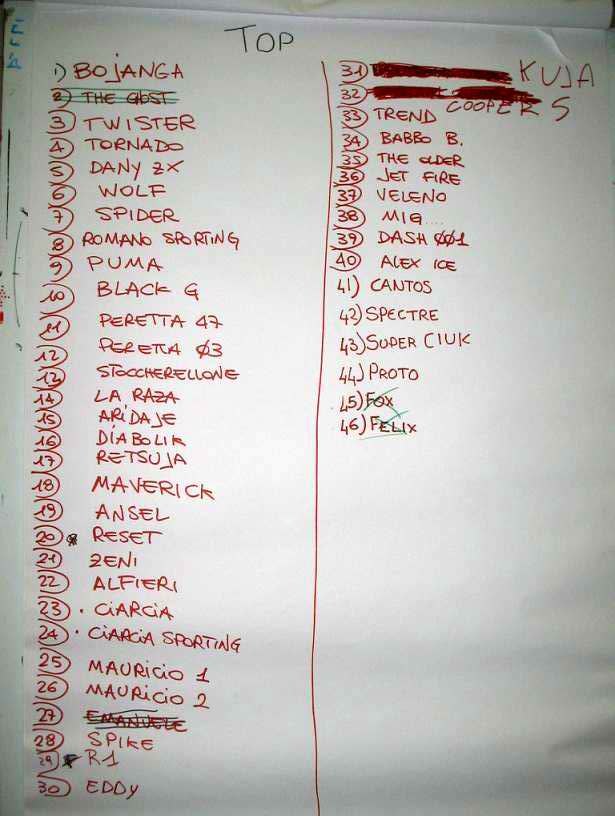 TOP
1) BOJANGA
2) THE GOST
3) TWISTER
4) TORNADO
5) DANY ZX
6) WOLF
7) SPIDER
8) ROMANO SPORTING
9) PUMA
10) BLACK G
11) PERETTA 47
12) PERETTA 03
13) STOCCHERELLONE
14) LA RAZA
15) ARIDAJE
16) DIABOLIK
17) RETSUJA
18) MAVERICK
19) ANSEL
20) RESET
21) ZENI
22) ALFIERI
23) · CIARCIA
24) · CIARCIA SPORTING
25) MAURICIO 1
26) MAURICIO 2
27) EMANUELE
28) SPIKE
29) R1
30) EDDY
31) KUJA
32) COOPER S
33) TREND
34) BABBO B.
35) THE OLDER
36) JET FIRE
37) VELENO
38) MIG....
39) DASH 001
40) ALEX ICE
41) CANTOS
42) SPECTRE
43) SUPER CIUK
44) PROTO
45) FOX
46) FELIX